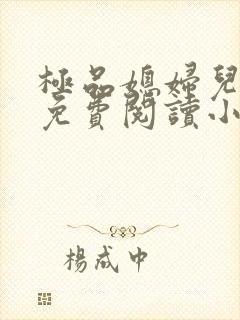 極品媳婦兒
免費閱讀小
楊成中